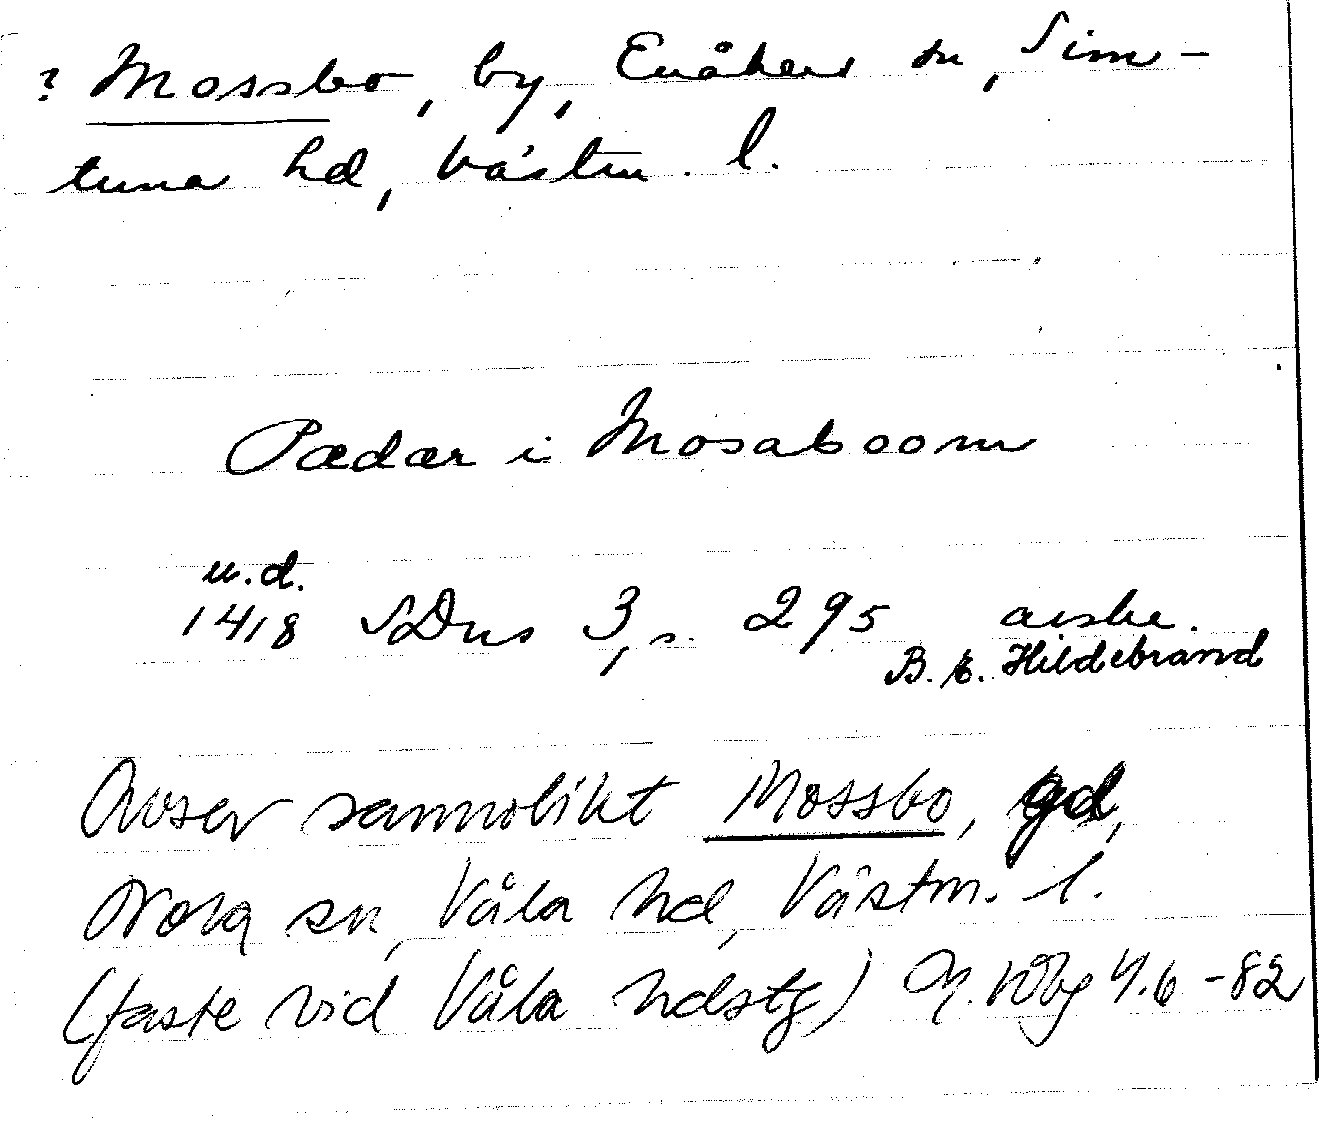 ? Mossbo, by, Enåkers sn, Sim-
tuna hd, Västm. l.
Pædær i Mosaboom
u.d.
1418 SDns 3, s. 295 avskr.
B. E. Hildebrand
Avser sannolikt Mossbo, gd,
Nora sn, Våla hd, Västm. l.
(faste vid Våla hdstg) M. Wbg 4.6 -82